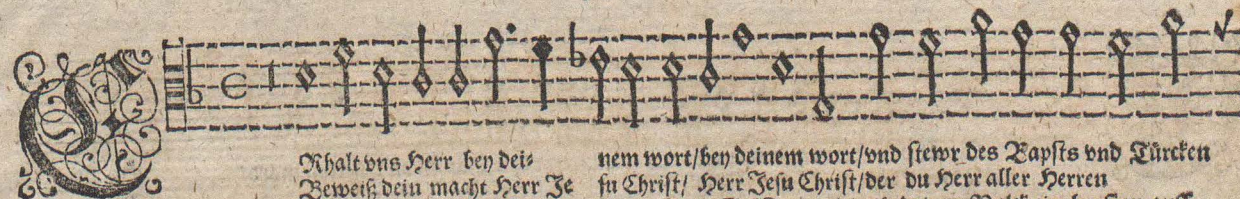 ERhalt vns Herr bey dei⸗ nem wort/bey deinem wort/vnd stewr des Bapsts vnd Türcken
Beweiß dein macht Herr Je su Christ/ Herr Jesu Christ/der du Herr aller Herren